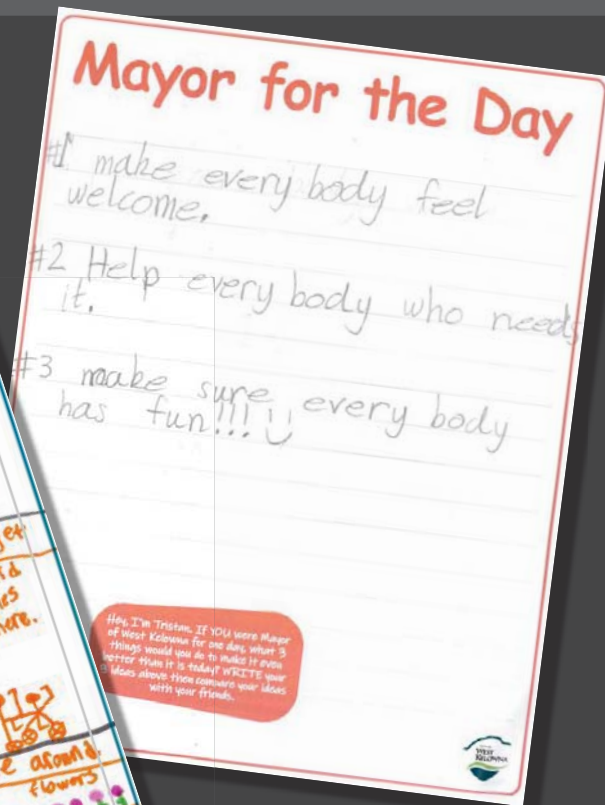 Mayor for the Day
#1 make every body feel
welcome.
#2 Help every body who needs
it.
#3 make sure every body
has fun!!!
Hey, I'm Tristan. If YOU were Mayor
of West Kelowna for one day, what 3
things would you do to make it even
better than it is today? WRITE your
3 ideas above then compare your ideas
with your friends.
WEST
KELOWNA
around.
flowers